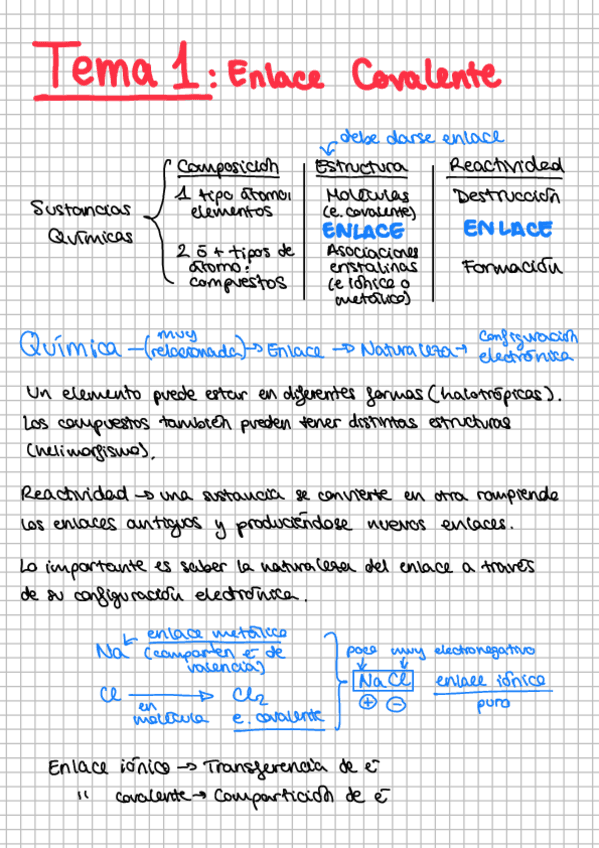 Tema 1: Enlace Covalente
debe darse enlace
Sustancias Químicas
Composición
1 tipo átomo:
elementos
2 ó + tipos de
átomo:
compuestos
Estructura
Moléculas
(e. covalente)
ENLACE
Asociaciones
cristalinas
(e iónico o
metálico)
Reactividad
Destrucción
ENLACE
Formación
Química -(muy relacionada)→ Enlace → Naturaleza → configuración electrónica
Un elemento puede estar en diferentes formas (halotrópicas).
Los compuestos también pueden tener distintas estructuras
(helimorfismo).
Reactividad → una sustancia se convierte en otra rompiendo
los enlaces antiguos y produciéndose nuevos enlaces.
Lo importante es saber la naturaleza del enlace a través
de su configuración electrónica.
enlace metálico
Na (comparten e⁻ de
valencia)
Cl → Cl₂
en
molécula
e. covalente
poco muy electronegativo
NaCl enlace iónico
+ - puro
Enlace iónico → Transferencia de e⁻
" covalente → Compartición de e⁻